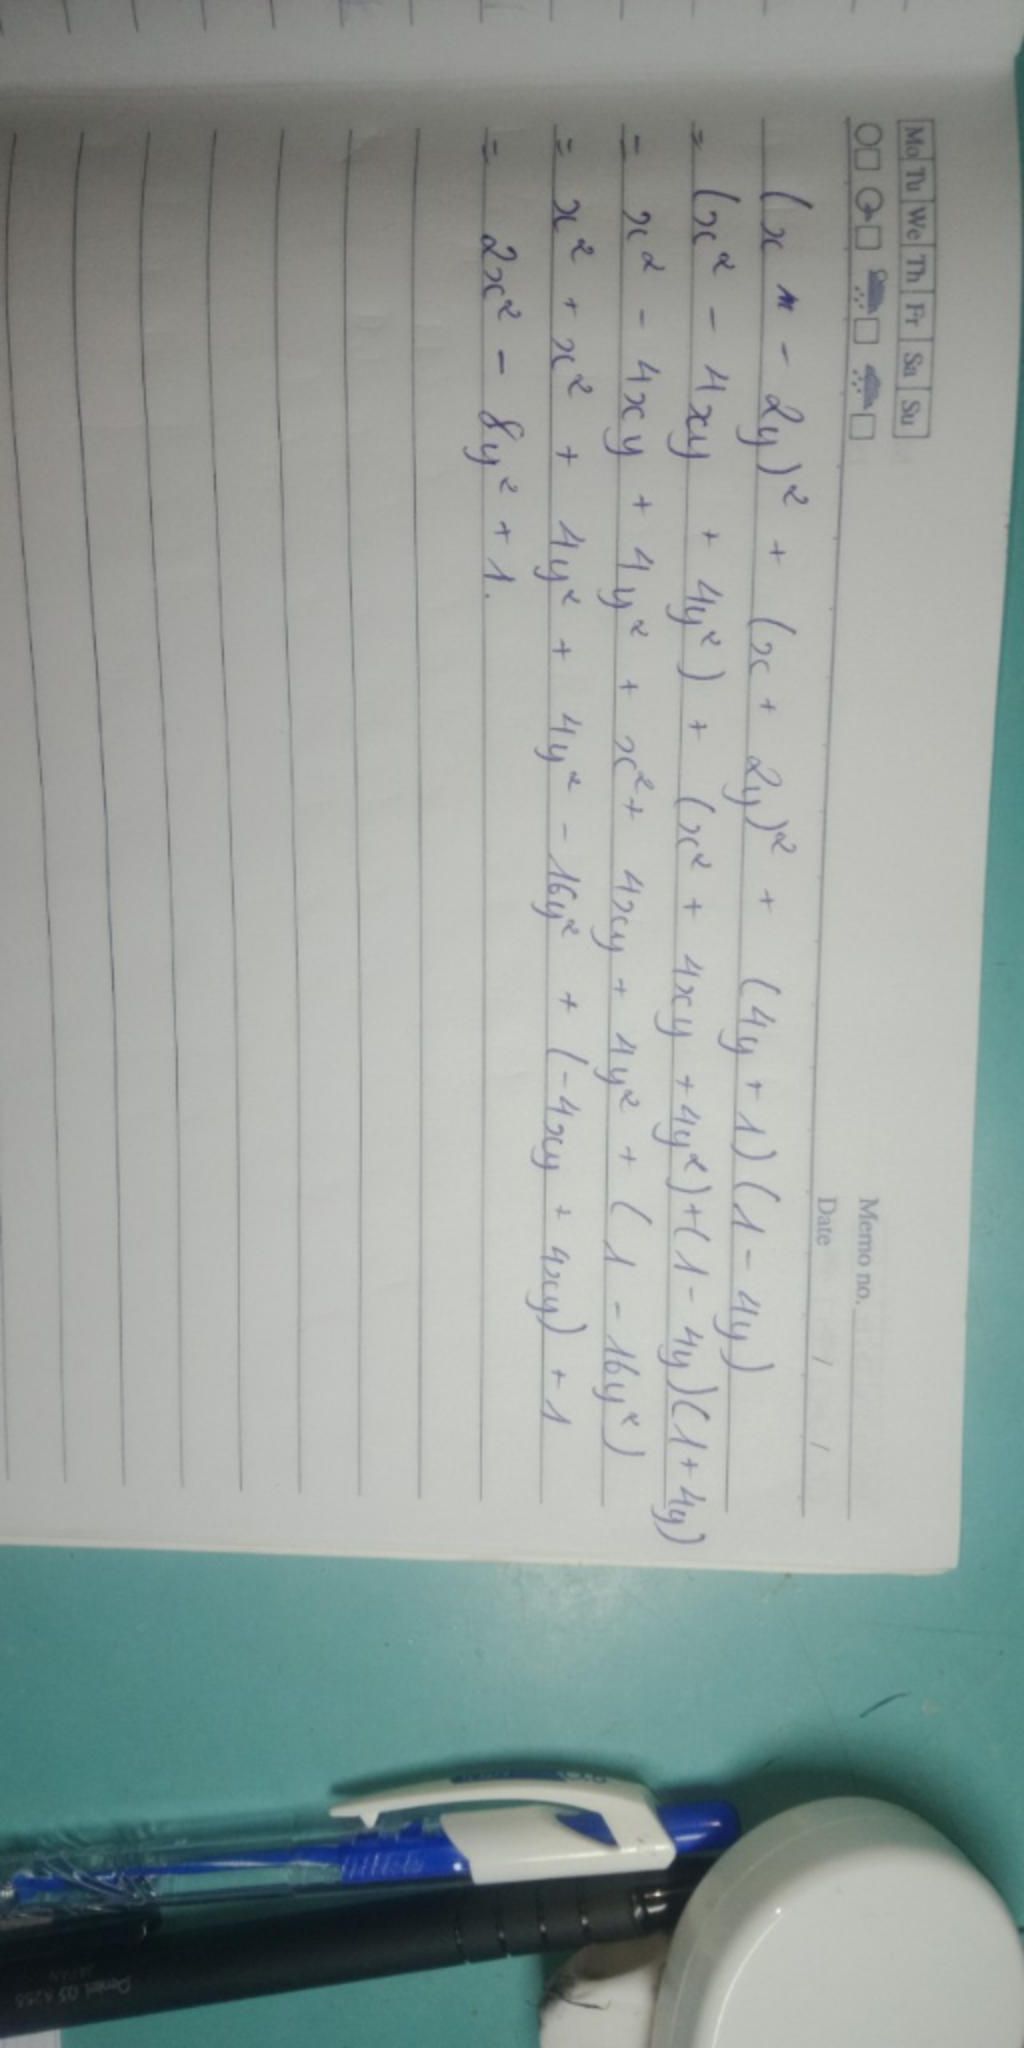 Mo Tu We Th Fr Sa Su
Memo no.
Date / /
(x - 2y)² + (x + 2y)² + (4y + 1)(1 - 4y)
= (x² - 4xy + 4y²) + (x² + 4xy + 4y²) + (1 - 4y)(1 + 4y)
= x² - 4xy + 4y² + x² + 4xy + 4y² + (1 - 16y²)
= x² + x² + 4y² + 4y² - 16y² + (-4xy + 4xy) + 1
= 2x² - 8y² + 1.
Pentel
JAPAN